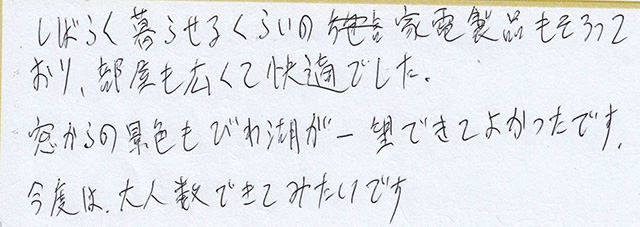 しばらく暮らせるくらいの家電製品もそろって
おり、部屋も広くて快適でした。
窓からの景色もびわ湖が一望できてよかったです。
今度は、大人数できてみたいです